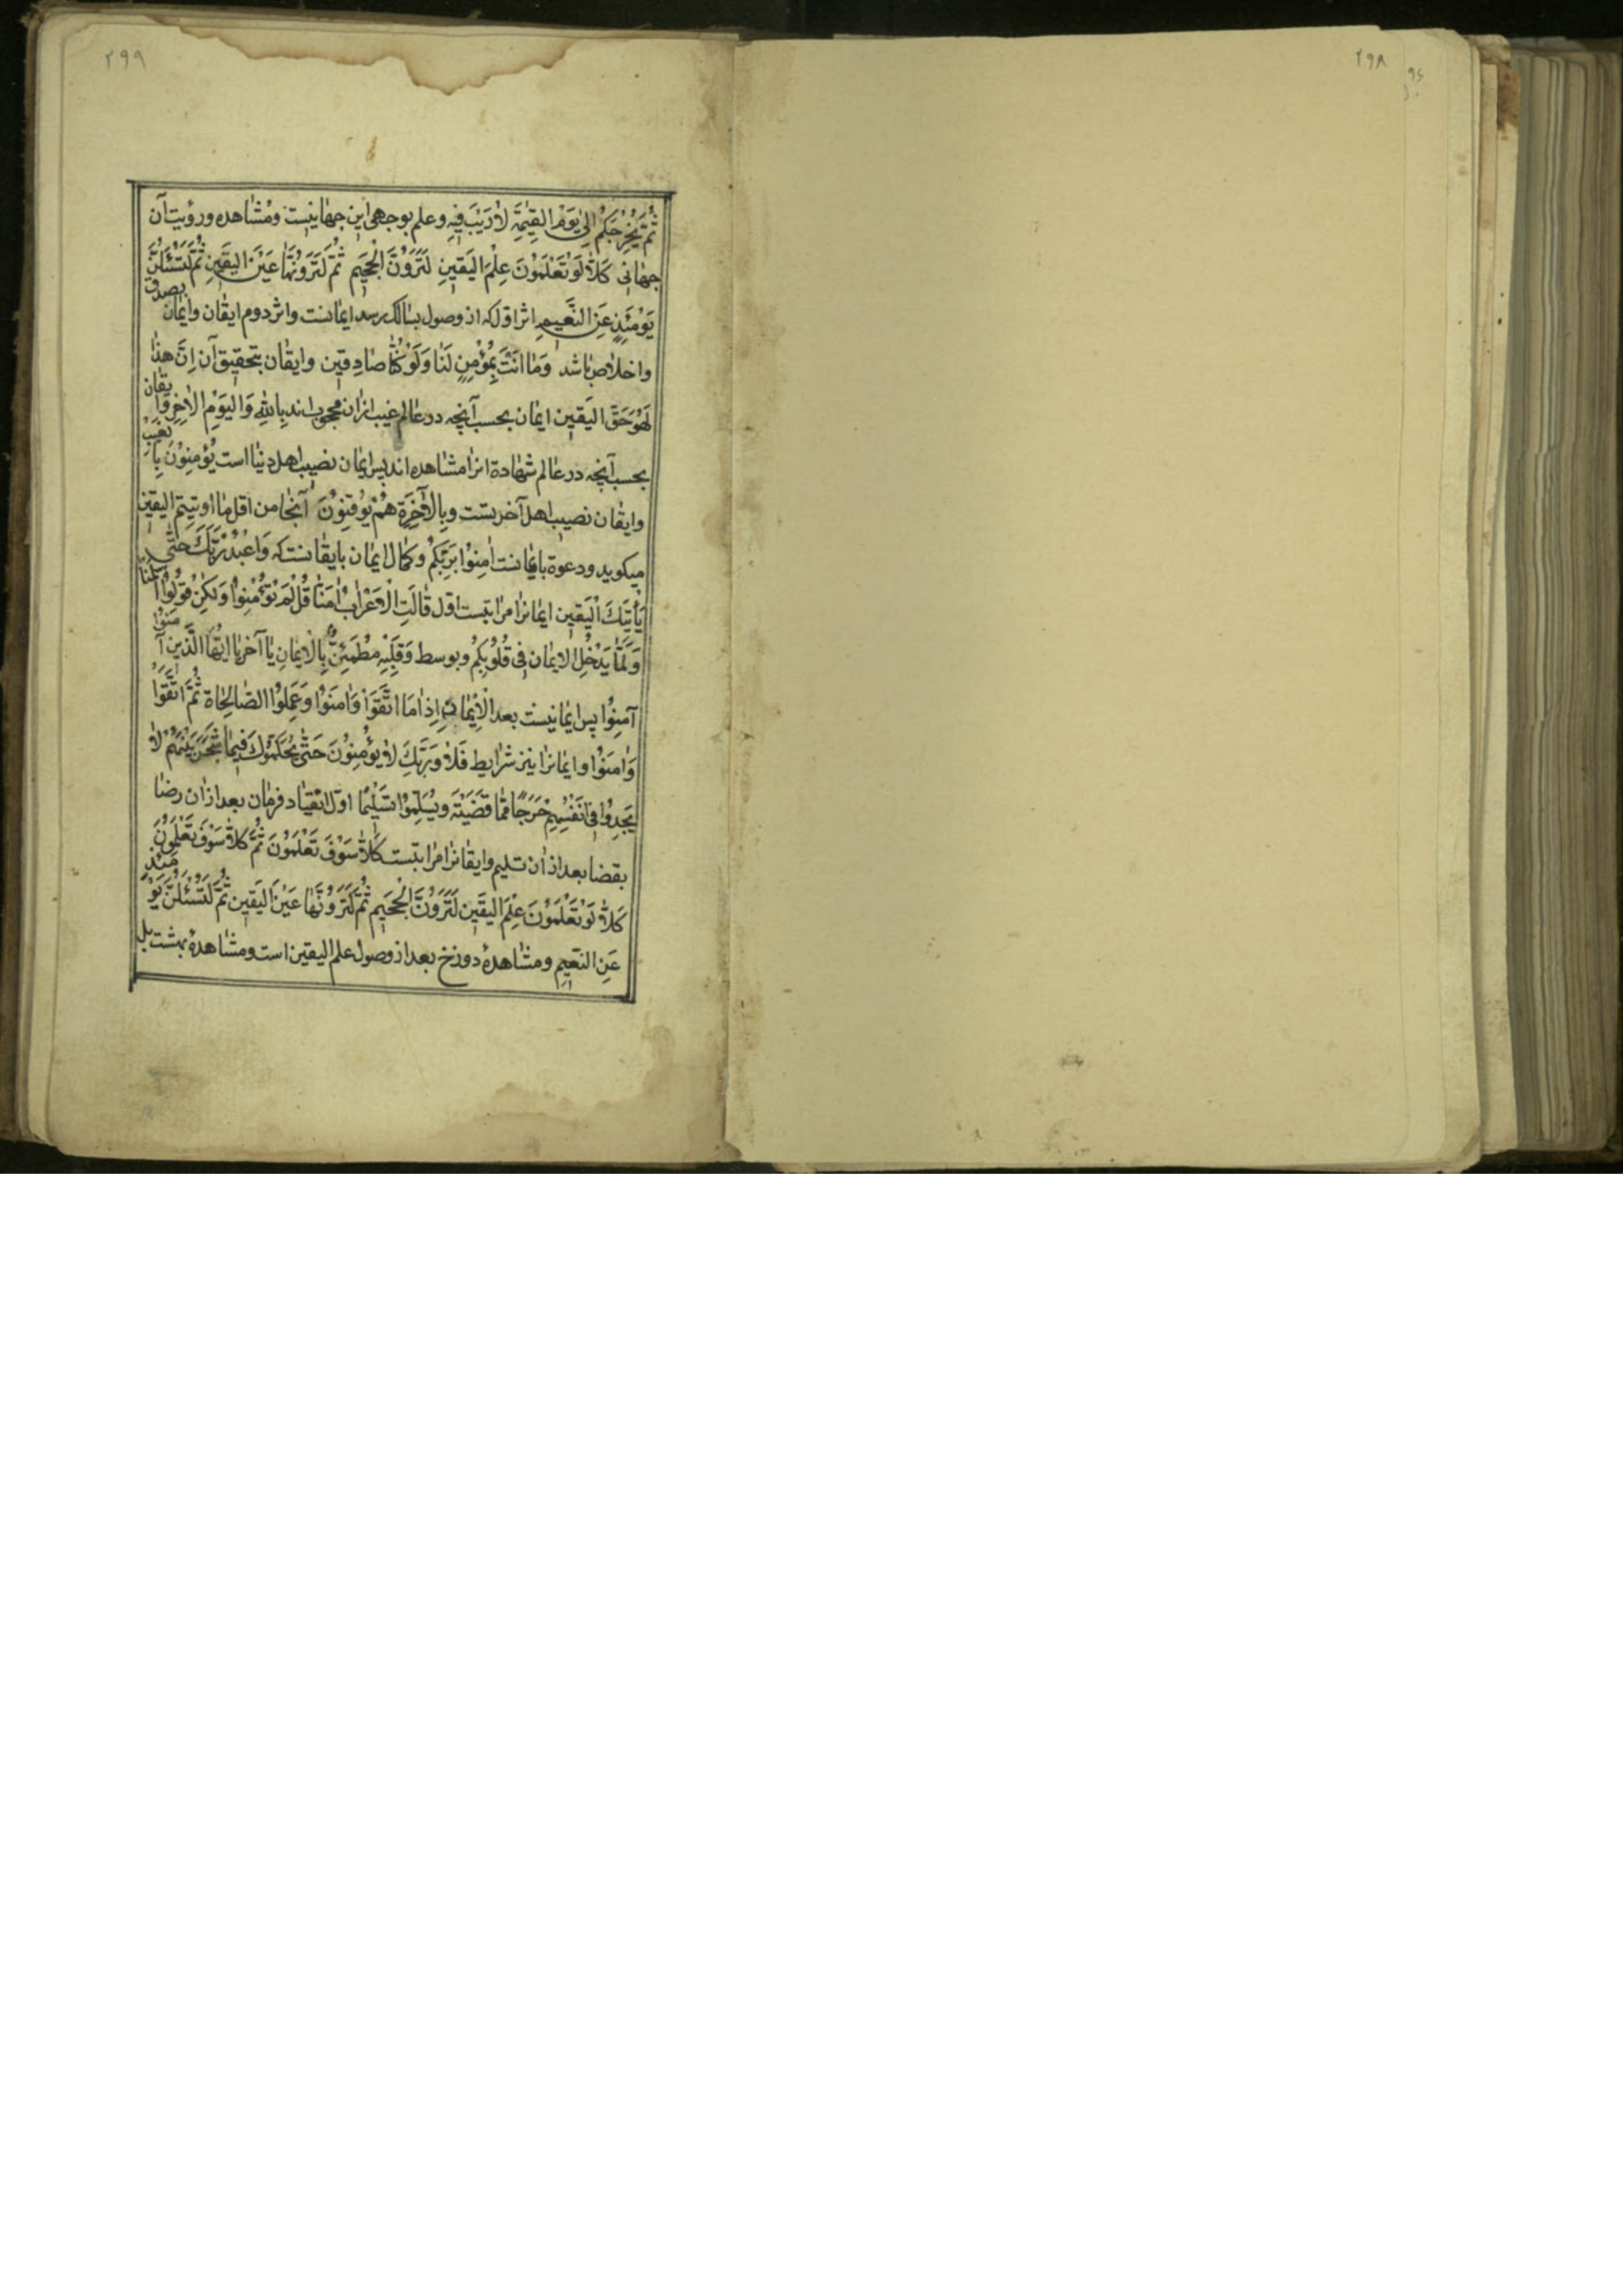 ۲۹۸
۲۹۹
ثُمَّ يُخْرِجَكُمْ اِلىٰ يَوْمِ الْقِيٰمَةِ لاٰ رَيْبَ فِيهِ وعلم بوجهى اين جهانيست ومشاهده ورؤيت آن
جهانى كَلاّٰ لَوْ تَعْلَمُوْنَ عِلْمَ الْيَقينِ لَتَرَوُنَّ الْجَحيمِ ثُمَّ لَتَرَوُنَّهٰا عَيْنَ اليَقينِ ثُمَّ لَتُسْئَلُنَّ
يَوْمَئِذٍ عَنِ النَّعيمِ اثر اول كه از وصول بسالك رسد ايمانست واثر دوم ايقان وايمان بصدق
واخلاص باشد وَمٰا انْتَ بِمُؤْمِنٍ لَنٰا وَلَوْ كُنّٰا صٰادِقينَ وايقان بتحقيق آن اِنَّ هذٰا
لَهُوَ حَقّ اليَقين ايمان بحسب آنچه در عالم غيب ازان محجوب اند بِاللهِ وَاليَوْمِ الاٰخِرِ وايقان
بحسب آنچه در عالم شهادة انرا مشاهده اند پس ايمان نصيب اهل دنيا است يُؤْمِنُوْنَ بِالغَيْبِ
وايقان نصيب اهل آخرتست وبِالاٰخِرَةِ هُمْ يُوْقِنُوْنَ آنجا من اقل ما اوتيتم اليقين
ميكويد ودعوة بايمانست اٰمِنُوْا بِرَبِّكُمْ وكمال ايمان بايقانست كه وَاعْبُدْ رَبَّكَ حَتّٰى
يَأْتِيَكَ الْيَقين ايمانرا مراتبست اول قٰالَتِ الْاَعْرٰابُ اٰمَنّٰا قُلْ لَمْ تُؤْمِنُوْا وَلكِنْ قُوْلُوْا اَسْلَمْنٰا
وَلَمّٰا يَدْخُلِ الايمٰان فِى قُلُوْبِكُمْ وبوسط وَقَلْبُهُ مُطْمَئِنٌّ بِالْايمٰانِ يا آخر يٰا اَيُّهَا الَّذينَ آمَنُوْا
آمِنُوْا پس ايمانيست بعد الْاِيْمٰان اِذٰا مَا اتَّقَوْا وَاٰمَنُوْا وَعَمِلُوا الصّٰالِحٰاة ثُمَّ اتَّقَوْا
وَاٰمَنُوْا وايمانرا نيز شرايط فَلاٰ وَرَبِّكَ لاٰ يُؤْمِنُوْنَ حَتّٰى يُحَكِّمُوْكَ فيمٰا شَجَرَ بَيْنَهُمْ لاٰ
يَجِدُوْا فِى اَنْفُسِهِمْ حَرَجًا مِمّٰا قَضَيْتَ ويُسَلِّمُوْا تَسْليمًا اول انقياد فرمان بعد ازان رضا
بقضا بعد ازان تسليم وايقانرا مراتبست كَلاّٰ سَوْفَ تَعْلَمُوْنَ ثُمَّ كَلاّٰ سَوْفَ تَعْلَمُوْنَ
كَلاّٰ لَوْ تَعْلَمُوْنَ عِلْمَ اليَقين لَتَرَوُنَّ الْجَحيم ثُمَّ لَتَرَوُنَّهٰا عَيْنَ اليَقين ثُمَّ لَتُسْئَلُنَّ يَوْمَئِذٍ
عَنِ النَّعيمِ ومشاهدهٔ دوزخ بعد از وصول علم اليقين است ومشاهدهٔ بهشت بل